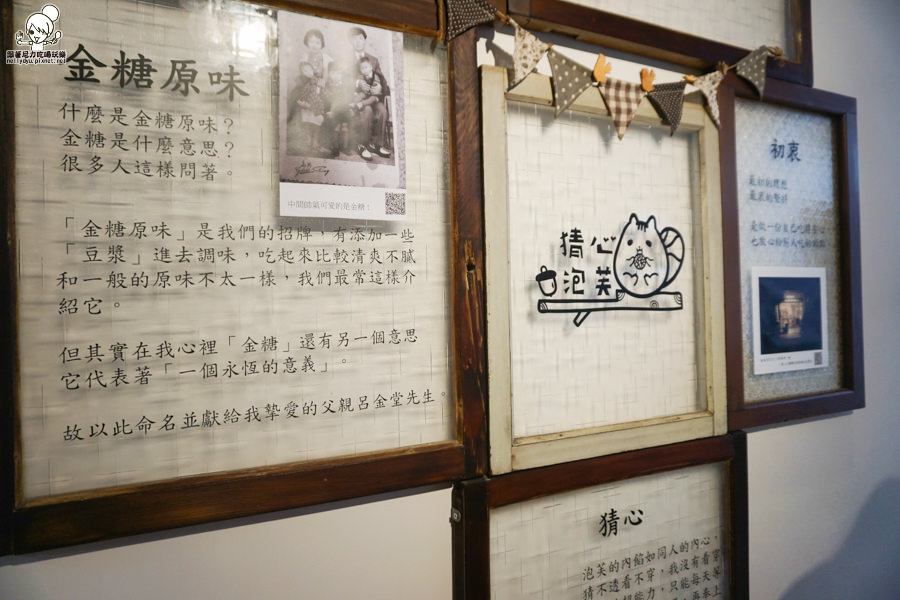 跟著尼力吃喝玩樂
nellydyu.pixnet.net
金糖原味
什麼是金糖原味？
金糖是什麼意思？
很多人這樣問著。
中間帥氣可愛的是金糖！
「金糖原味」是我們的招牌，有添加一些
「豆漿」進去調味，吃起來比較清爽不膩
和一般的原味不太一樣，我們最常這樣介
紹它。
但其實在我心裡「金糖」還有另一個意思
它代表著「一個永恆的意義」。
故以此命名並獻給我摯愛的父親呂金堂先生。
猜心
泡芙
初衷
最初的理想
最底的堅持
是做一份自己吃得安心
猜心
泡芙的內餡如同人的內心，
猜不透看不穿，我沒有看穿
超能力，只能每天